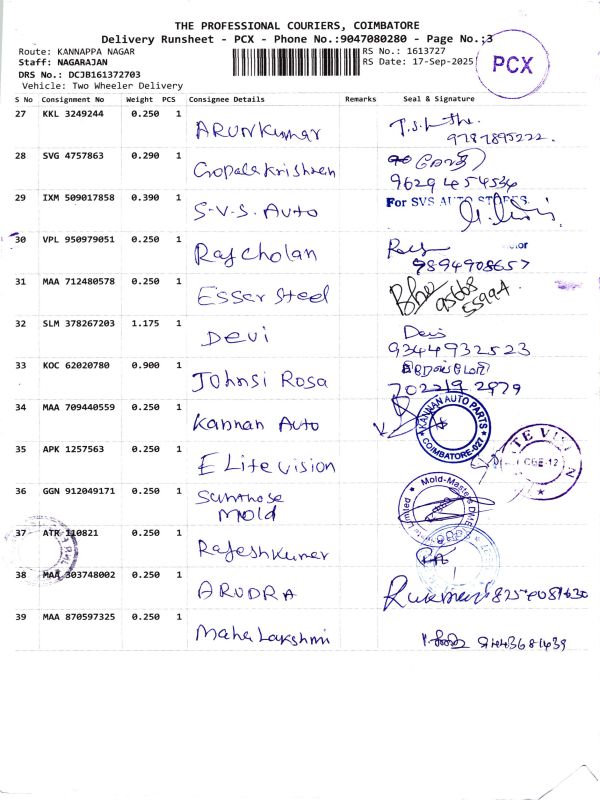 THE PROFESSIONAL COURIERS, COIMBATORE
Delivery Runsheet - PCX - Phone No.:9047080280 - Page No.:3
Route: KANNAPPA NAGAR
RS No.: 1613727
Staff: NAGARAJAN
RS Date: 17-Sep-2025
DRS No.: DCJB161372703
Vehicle: Two Wheeler Delivery
PCX
S No Consignment No Weight PCS Consignee Details Remarks Seal & Signature
27 KKL 3249244 0.250 1 ARUNKumar
9787895222.
28 SVG 4757863 0.290 1 Gopalakrishnan
9629454534
29 IXM 509017858 0.390 1 S.V.S. Auto
For SVS AUTO STORES.
30 VPL 950979051 0.250 1 Rajcholan
9894908657
31 MAA 712480578 0.250 1 Essar Steel
95668
55994
32 SLM 378267203 1.175 1 Devi Devi
9344932523
33 KOC 62020780 0.900 1 Johnsi Rosa
7022192979
34 MAA 709440559 0.250 1 Kannan Auto
KANNAN AUTO PARTS
COIMBATORE-027
35 APK 1257563 0.250 1 Elite vision
36 GGN 912049171 0.250 1 Sunnhose
Mold
Mold-Masters
37 ATR 110821 0.250 1 Rajeshkumar
38 MAA 303748002 0.250 1 ARUDRA
Rukman 8254081630
39 MAA 870597325 0.250 1 MahaLakshmi